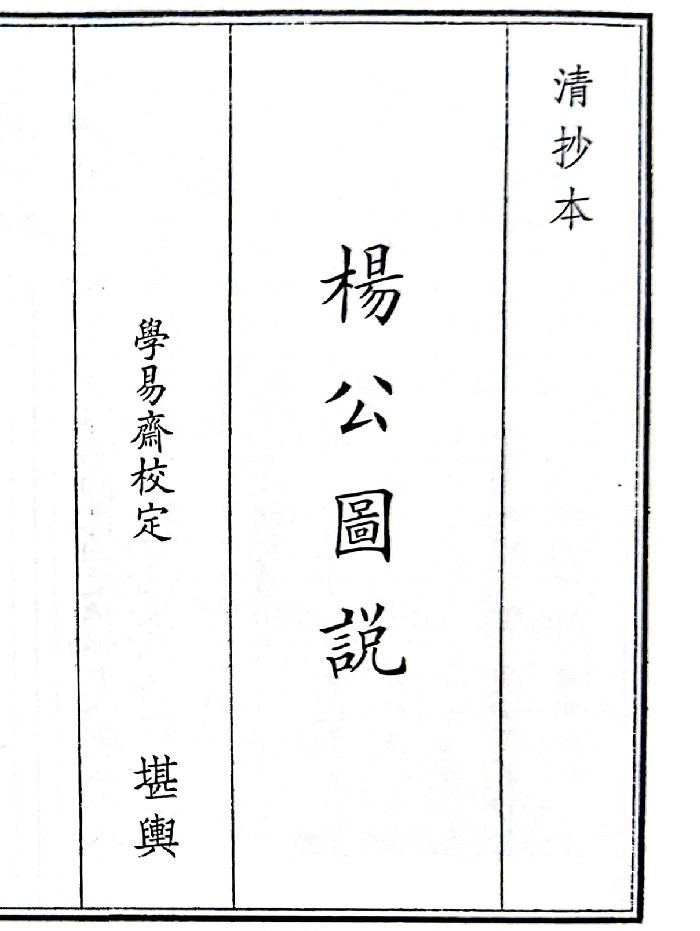 清抄本
楊公圖説
學易齋校定
堪輿